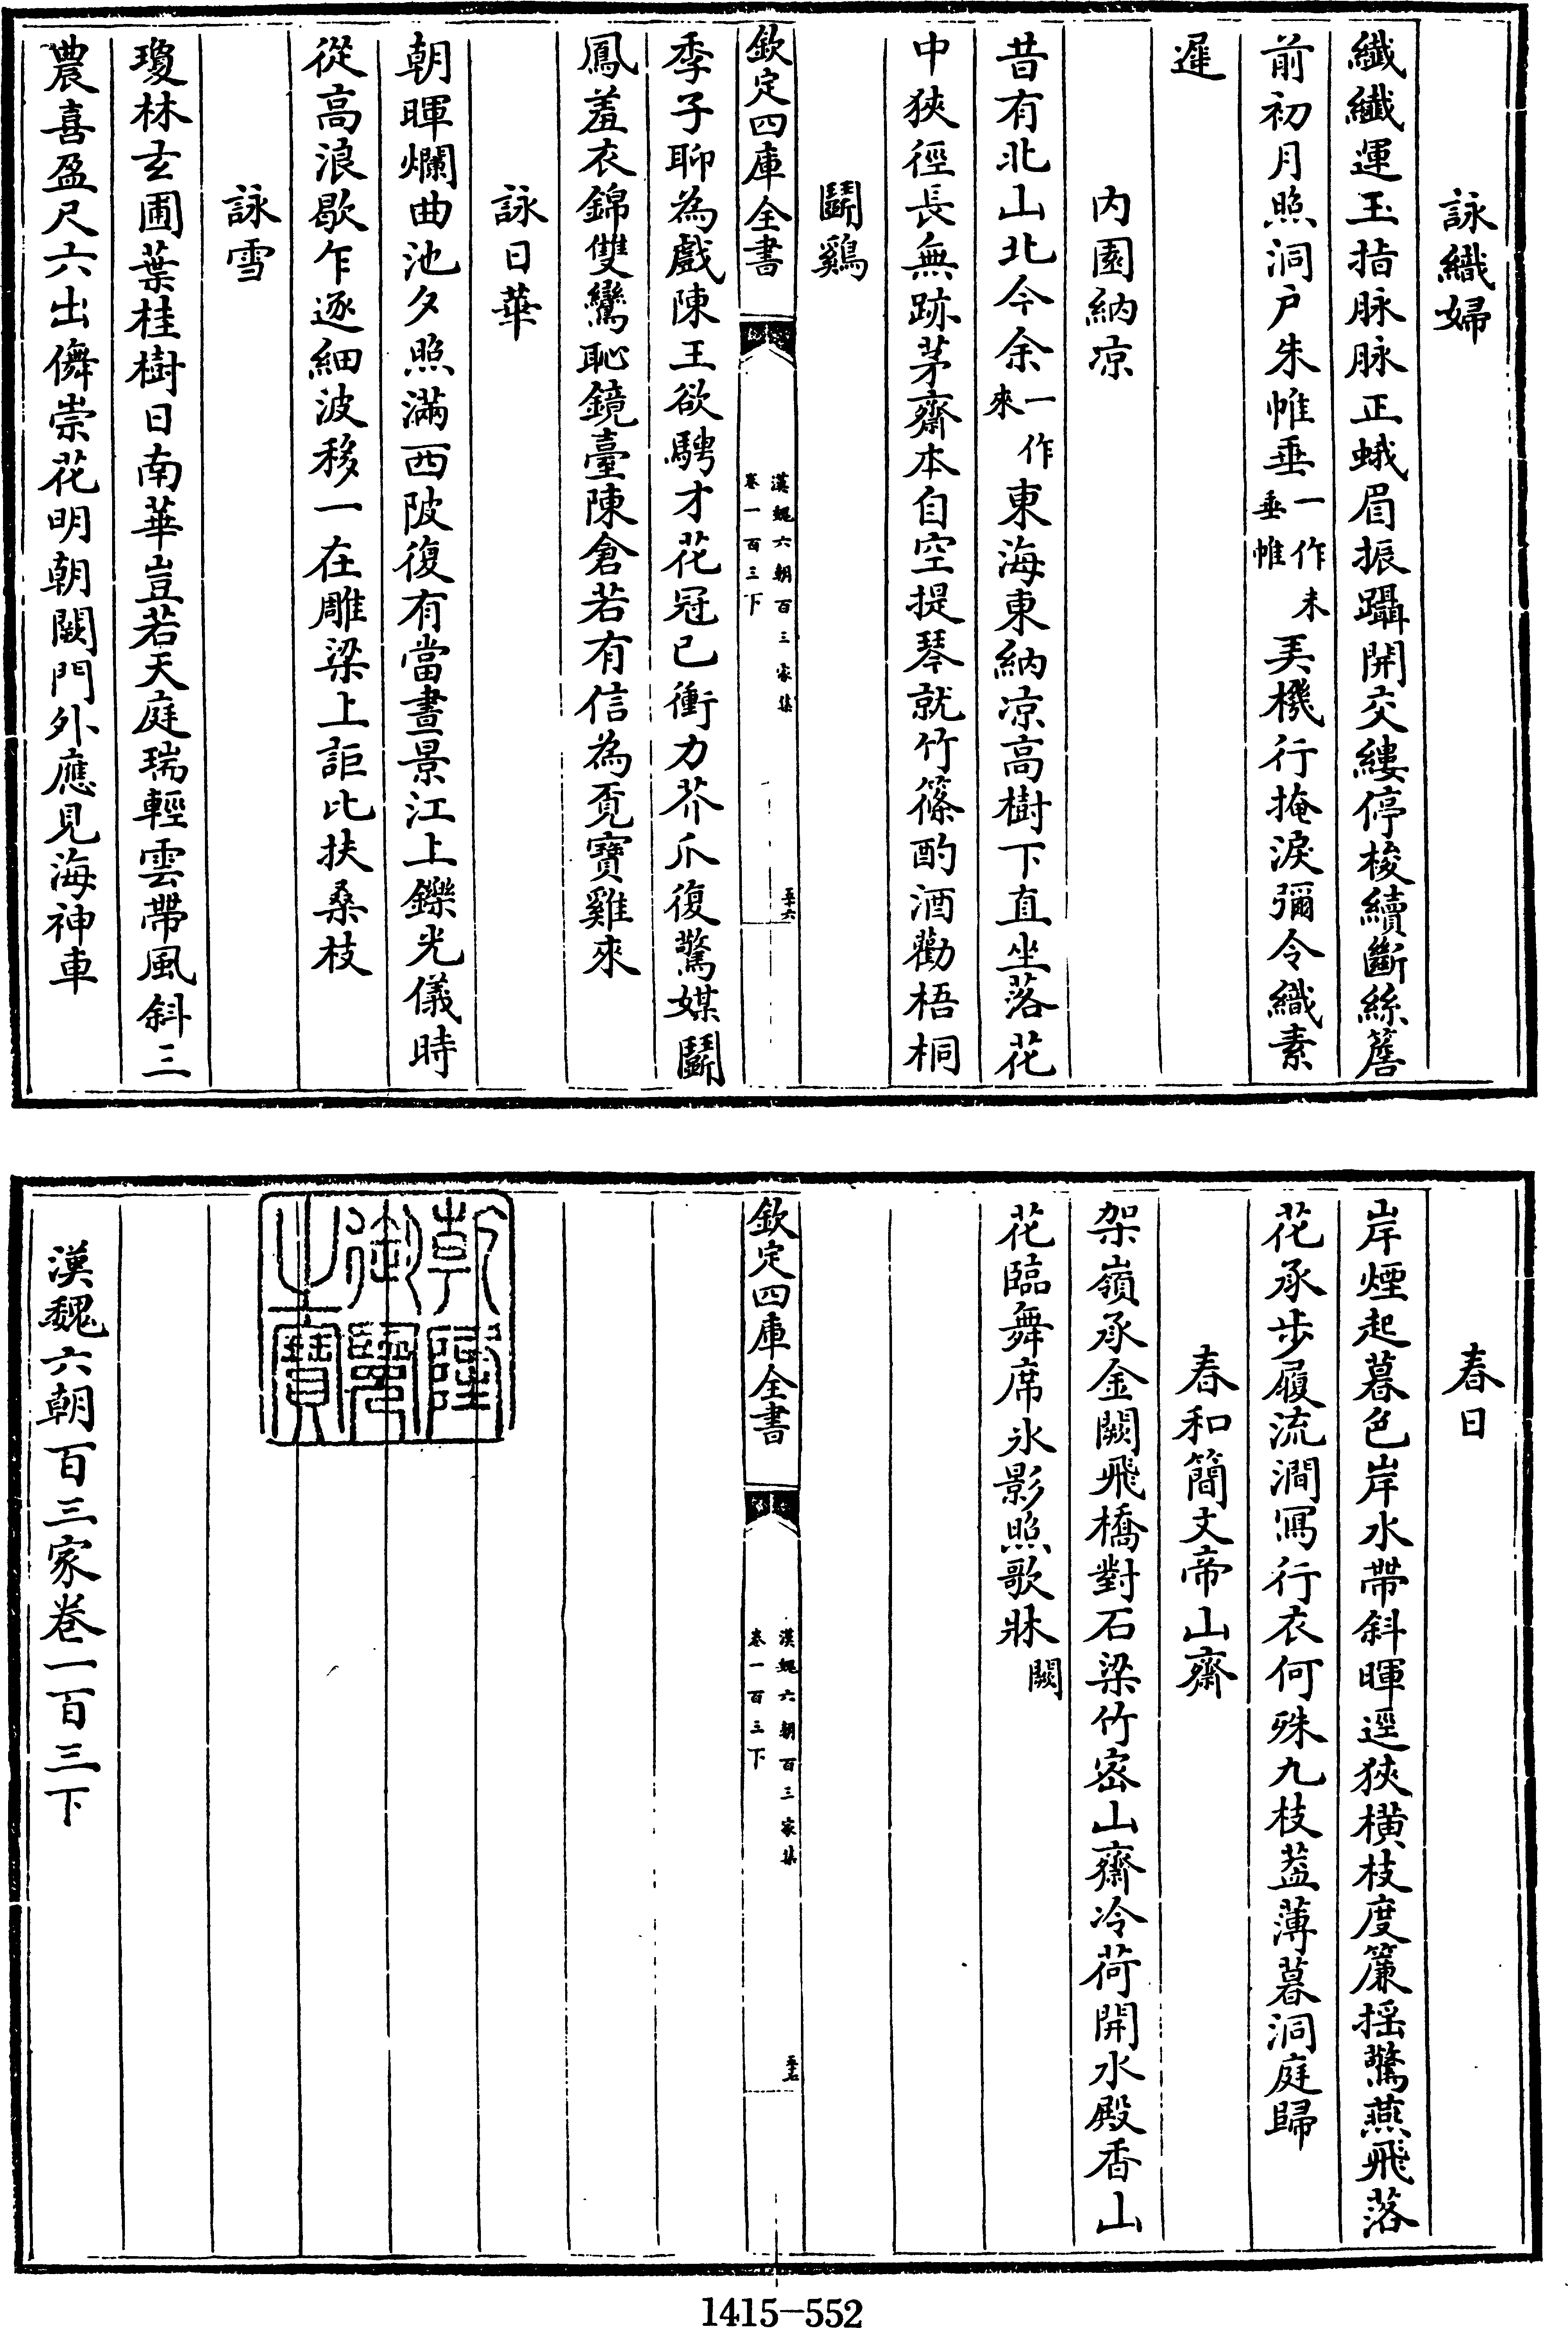 詠織婦
纖纖運玉指脉脉正蛾眉振躡開交縷停梭續斷絲簷
前初月照洞户朱帷垂一作未垂帷弄機行掩淚彌令織素
遲
内園納凉
昔有北山北今余一作來東海東納凉高樹下直坐落花
中狹徑長無跡茅齋本自空提琴就竹篠酌酒勸梧桐
鬭鷄
欽定四庫全書
漢魏六朝百三家集
卷一百三下
五十六
季子聊為戲陳王欲騁才花冠已衝力芥爪復驚媒鬭
鳳羞衣錦雙鸞恥鏡臺陳倉若有信為覔寶雞來
詠日華
朝暉爛曲池夕照滿西陂復有當晝景江上鑠光儀時
從高浪歇乍逐細波移一在雕梁上詎比扶桑枝
詠雪
瓊林玄圃葉桂樹日南華豈若天庭瑞輕雲帶風斜三
農喜盈尺六出儛崇花明朝闕門外應見海神車
春日
岸煙起暮色岸水帶斜暉逕狹橫枝度簾揺驚燕飛落
花承步履流澗寫行衣何殊九枝葢薄暮洞庭歸
春和簡文帝山齋
架嶺承金闕飛橋對石梁竹密山齋冷荷開水殿香山
花臨舞席氷影照歌牀闕
欽定四庫全書
漢魏六朝百三家集
卷一百三下
五十七
乾隆御覽之寶
漢魏六朝百三家卷一百三下
1415-552